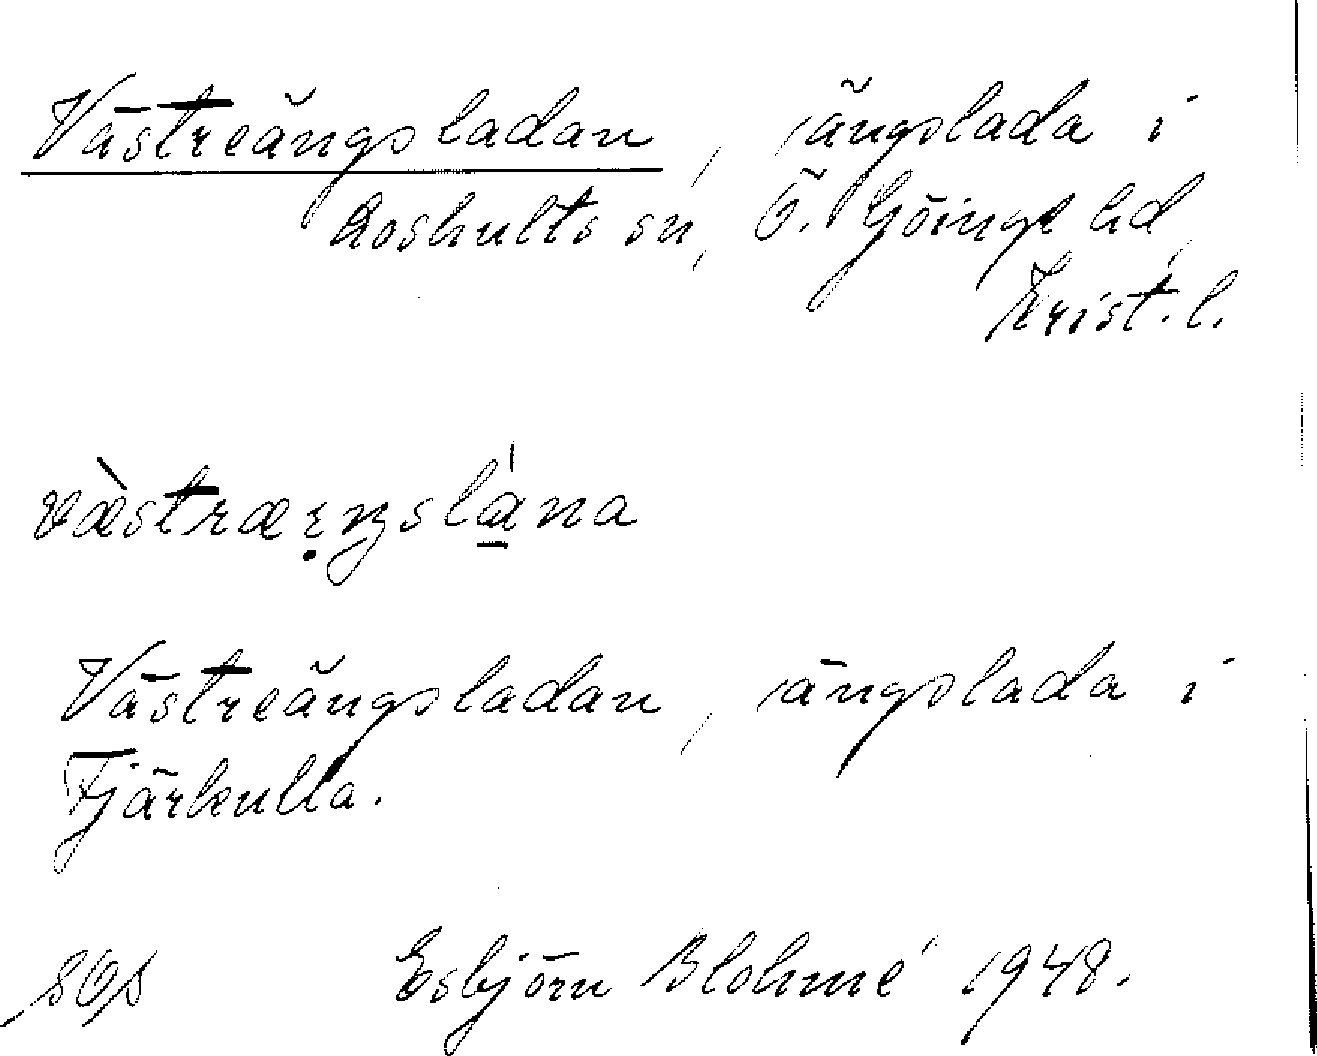 Västreängsladan, ängslada i
Loshults sn, Ö. Göinge hd,
Krist. l.
væ̀stræɪ̣ŋslàna
Västreängsladan, ängslada i
Fjärkulla.
Esbjörn Blohmé 1948.